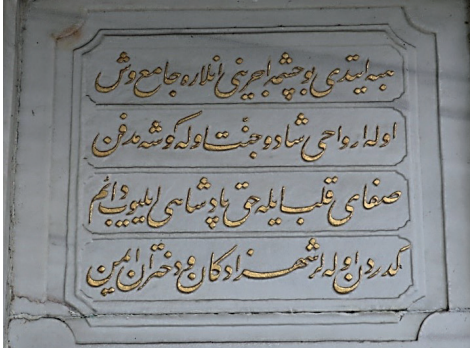 هبه ایتدی بو چشمه اجرینی انلاره جامع وش
اوله ارواحی شاد و جنت اوله كوشه مدفن
صفای قلب ایله حق پادشاهی ایلیوب دائم
كدردن اوله لر شهزادكان و دختران ایمن